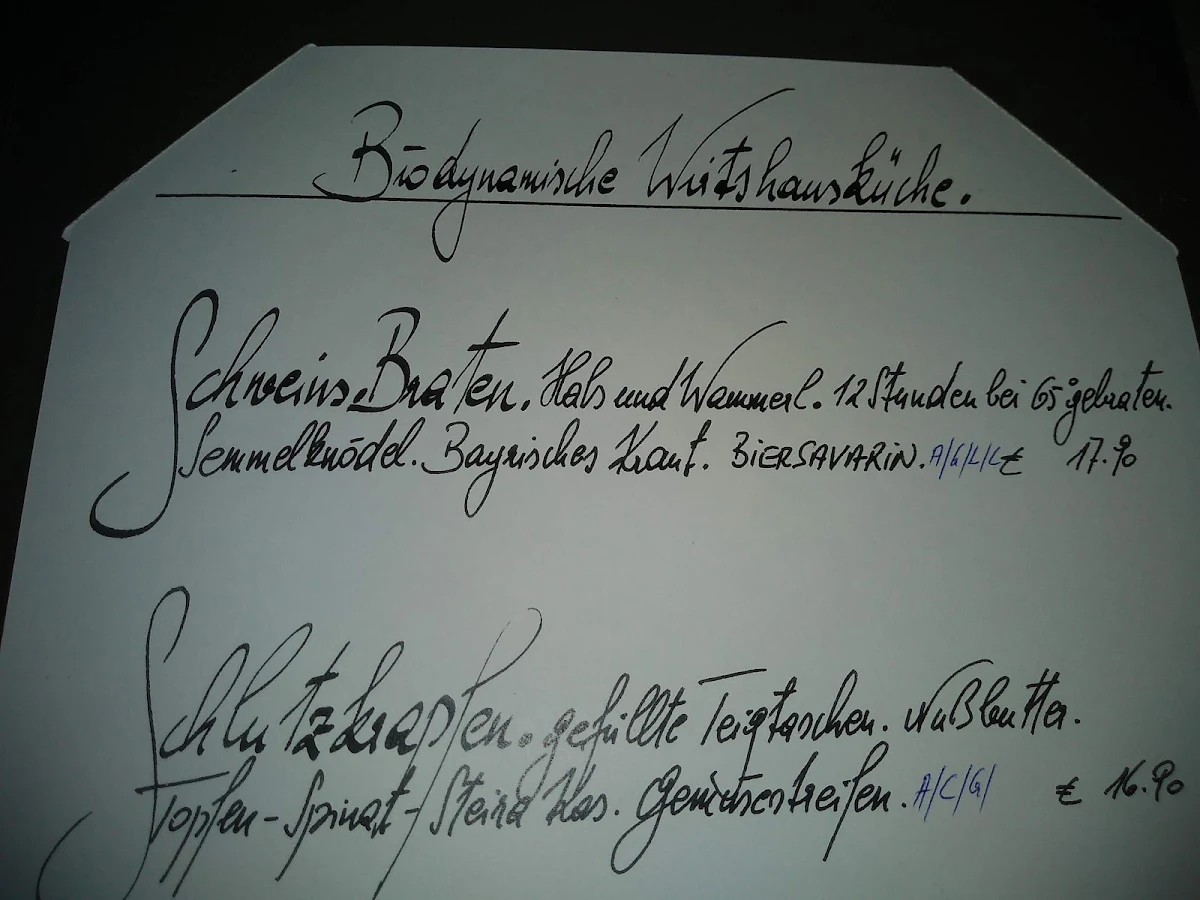 Biodynamische Wirtshausküche.
Schweins-Braten. Hals und Wammerl. 12 Stunden bei 65° gebraten.
Semmelknödel. Bayrisches Kraut. BIERSAVARIN. A/G/L/L € 17.90
Schlutzkrapfen. gefüllte Teigtaschen. Nußbutter.
Topfen-Spinat-Steira Kas. Gemüsestreifen. A/C/G/ € 16.90